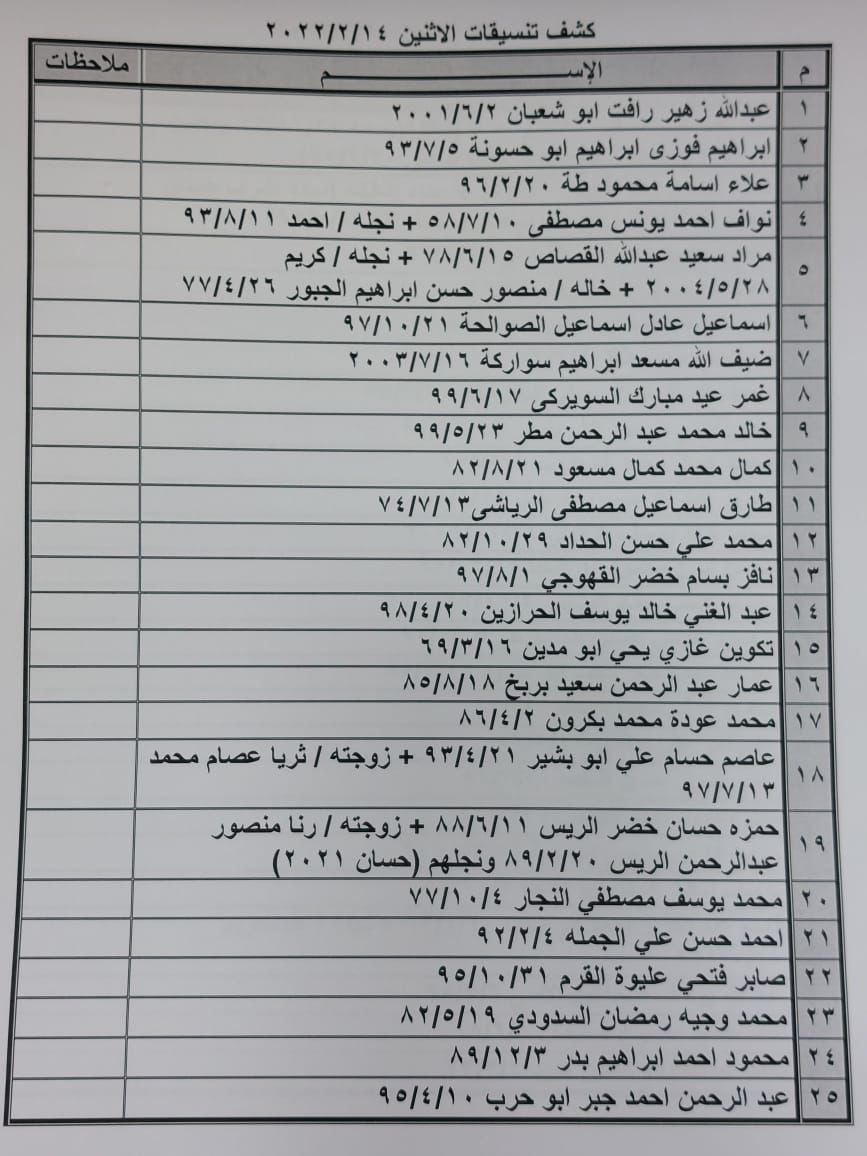 كشف تنسيقات الاثنين ٢٠٢٢/٢/١٤
م الإســـــــــم ملاحظات
١ عبدالله زهير رافت ابو شعبان ٢٠٠١/٦/٢
٢ ابراهيم فوزى ابراهيم ابو حسونة ٩٣/٧/٥
٣ علاء اسامة محمود طة ٩٦/٢/٢٠
٤ نواف احمد يونس مصطفى ٥٨/٧/١٠ + نجله / احمد ٩٣/٨/١١
٥ مراد سعيد عبدالله القصاص ٧٨/٦/١٥ + نجله / كريم
٢٠٠٤/٥/٢٨ + خاله / منصور حسن ابراهيم الجبور ٧٧/٤/٢٦
٦ اسماعيل عادل اسماعيل الصوالحة ٩٧/١٠/٢١
٧ ضيف الله مسعد ابراهيم سواركة ٢٠٠٣/٧/١٦
٨ غمر عيد مبارك السويركى ٩٩/٦/١٧
٩ خالد محمد عبد الرحمن مطر ٩٩/٥/٢٣
١٠ كمال محمد كمال مسعود ٨٢/٨/٢١
١١ طارق اسماعيل مصطفى الرياشى٧٤/٧/١٣
١٢ محمد علي حسن الحداد ٨٢/١٠/٢٩
١٣ نافز بسام خضر القهوجي ٩٧/٨/١
١٤ عبد الغني خالد يوسف الحرازين ٩٨/٤/٢٠
١٥ تكوين غازي يحي ابو مدين ٦٩/٣/١٦
١٦ عمار عبد الرحمن سعيد بربخ ٨٥/٨/١٨
١٧ محمد عودة محمد بكرون ٨٦/٤/٢
١٨ عاصم حسام علي ابو بشير ٩٣/٤/٢١ + زوجته / ثريا عصام محمد
٩٧/٧/١٣
١٩ حمزه حسان خضر الريس ٨٨/٦/١١ + زوجته / رنا منصور
عبدالرحمن الريس ٨٩/٢/٢٠ ونجلهم (حسان ٢٠٢١)
٢٠ محمد يوسف مصطفي النجار ٧٧/١٠/٤
٢١ احمد حسن علي الجمله ٩٢/٢/٤
٢٢ صابر فتحي عليوة القرم ٩٥/١٠/٣١
٢٣ محمد وجيه رمضان السدودي ٨٢/٥/١٩
٢٤ محمود احمد ابراهيم بدر ٨٩/١٢/٣
٢٥ عبد الرحمن احمد جبر ابو حرب ٩٥/٤/١٠